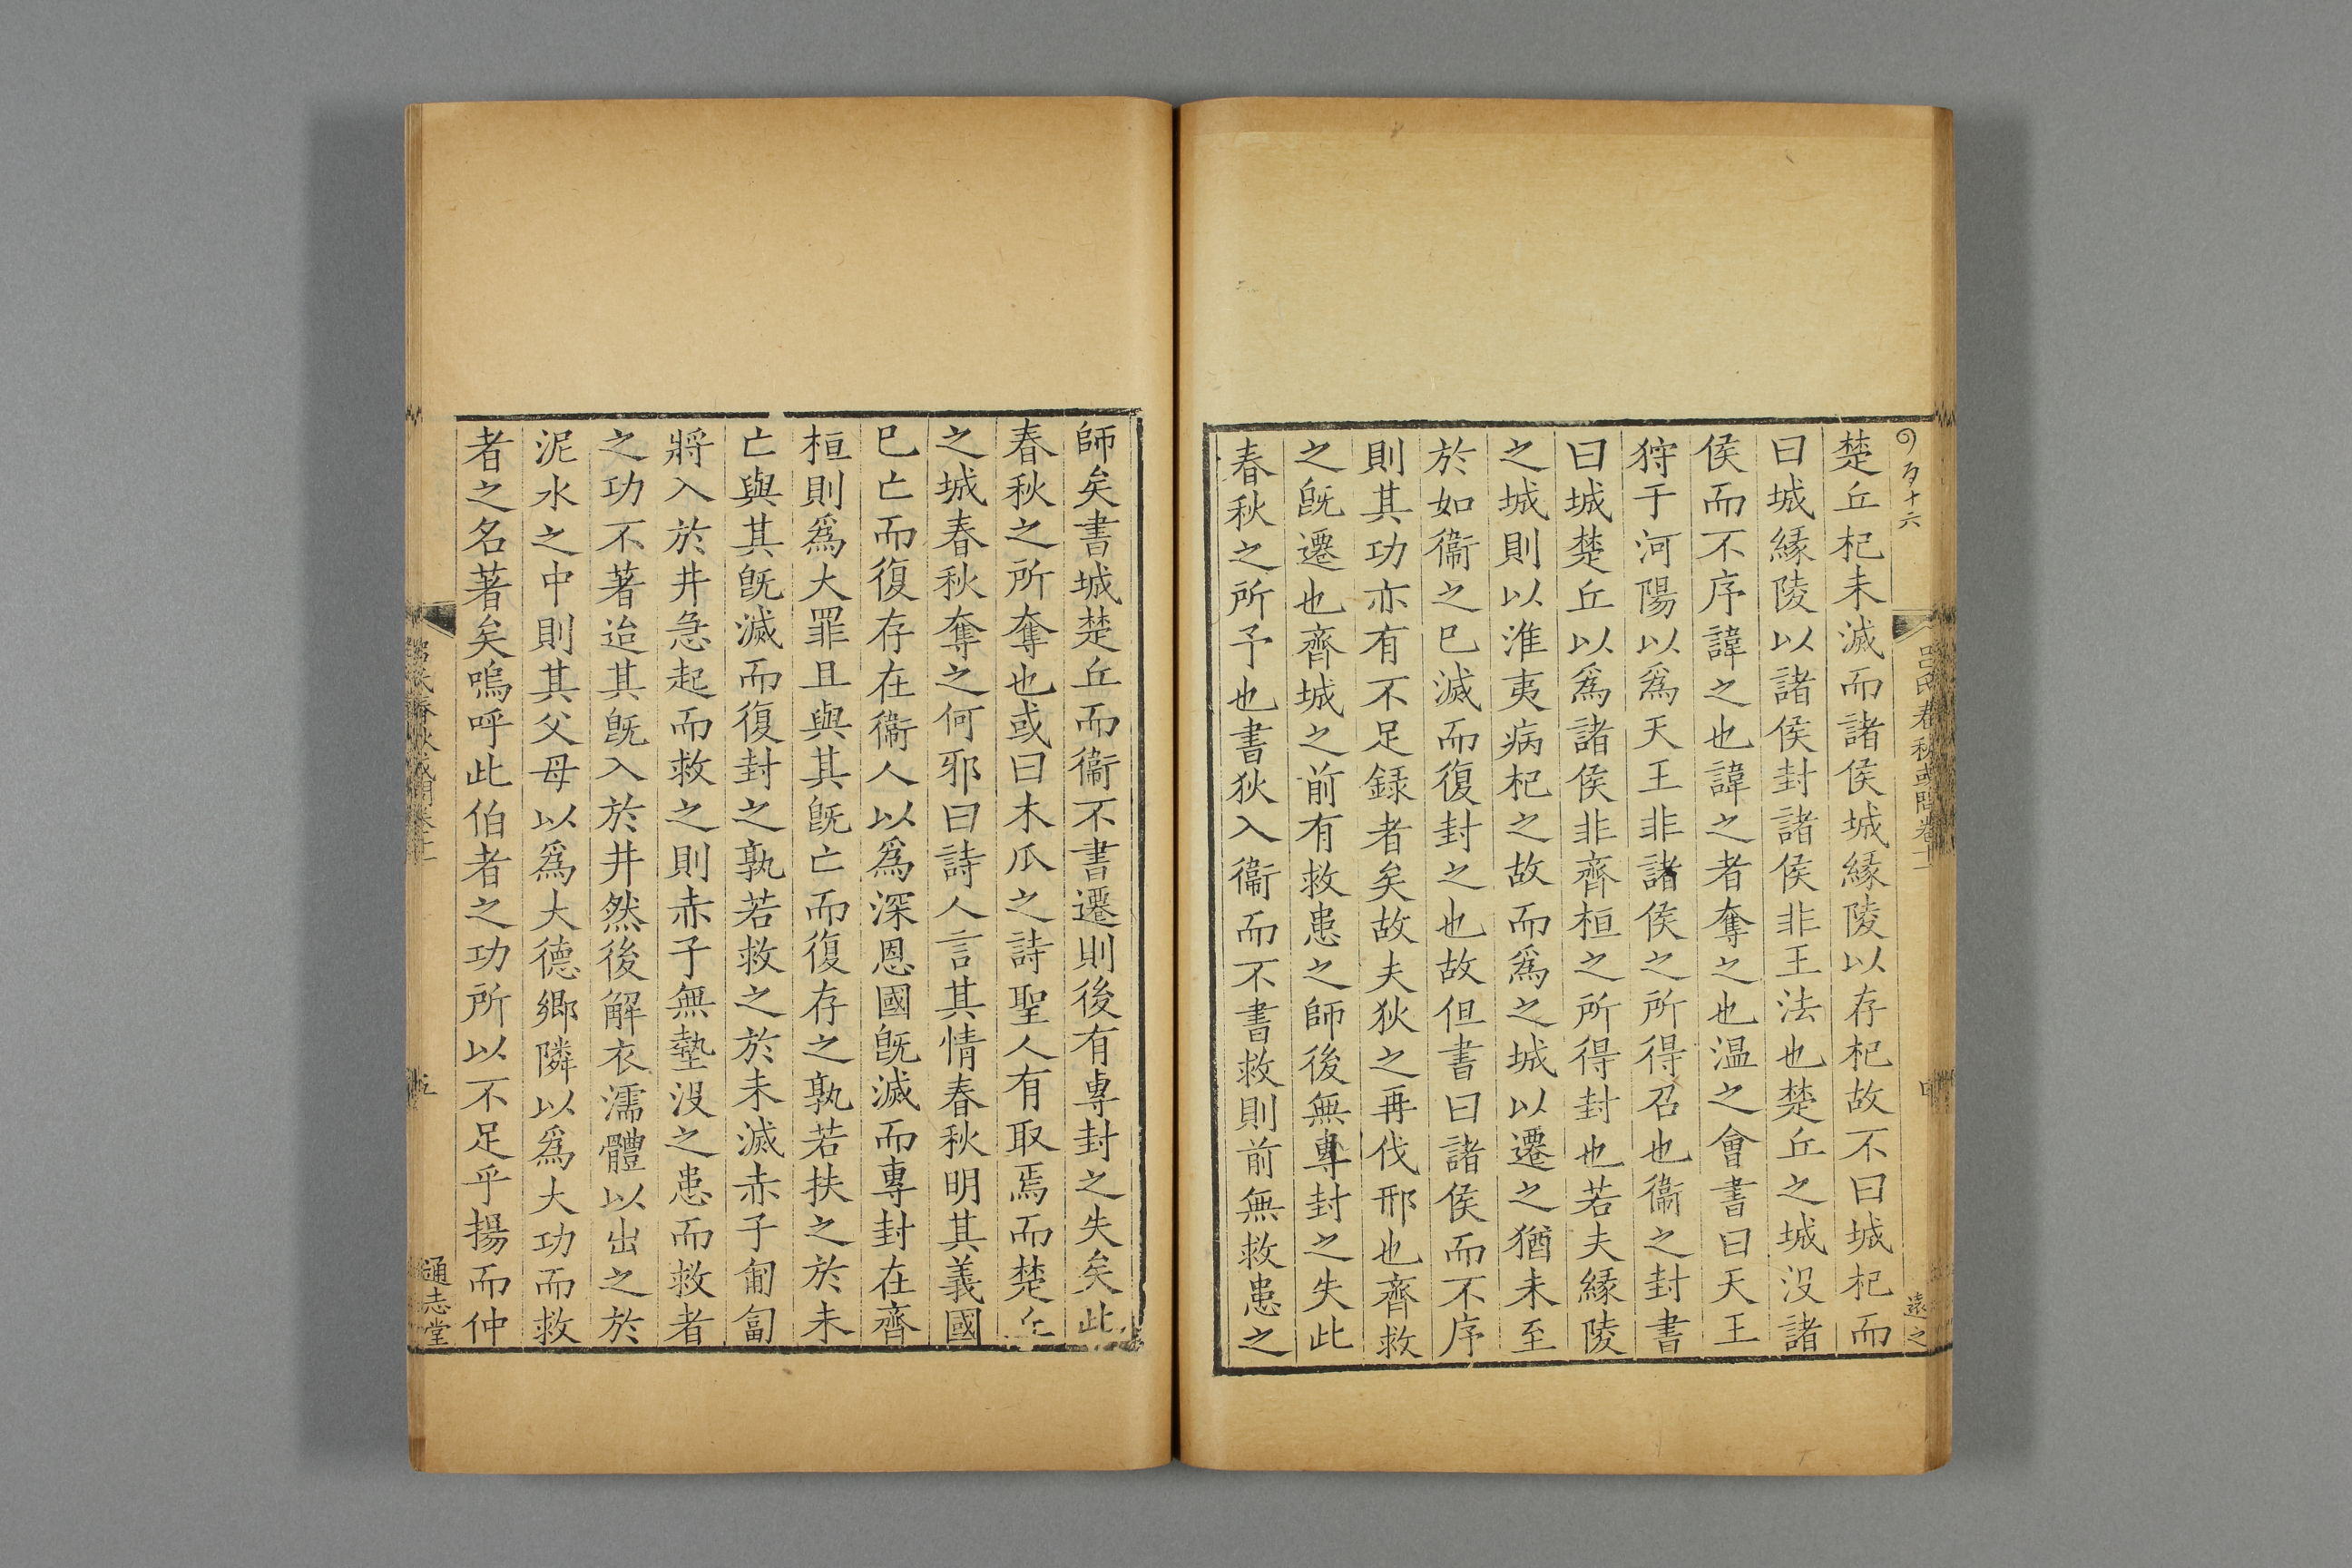 楚丘杞未滅而諸侯城緣陵以存杞故不曰城杞而
曰城緣陵以諸侯封諸侯非王法也楚丘之城没諸
侯而不序諱之也諱之者奪之也温之會書曰天王
狩于河陽以爲天王非諸侯之所得召也衞之封書
曰城楚丘以爲諸侯非齊桓之所得封也若夫緣陵
之城則以淮夷病杞之故而爲之城以遷之猶未至
於如衞之已滅而復封之也故但書曰諸侯而不序
則其功亦有不足録者矣故夫狄之再伐邢也齊救
之旣遷也齊城之前有救患之師後無專封之失此
春秋之所予也書狄入衞而不書救則前無救患之
師矣書城楚丘而衞不書遷則後有專封之失矣此
春秋之所奪也或曰木瓜之詩聖人有取焉而楚丘
之城春秋奪之何邪曰詩人言其情春秋明其義國
已亡而復存在衞人以爲深恩國旣滅而專封在齊
桓則爲大罪且與其旣亡而復存之孰若扶之於未
亡與其旣滅而復封之孰若救之於未滅赤子匍匐
將入於井急起而救之則赤子無墊没之患而救者
之功不著迨其旣入於井然後解衣濡體以出之於
泥水之中則其父母以爲大德鄉隣以爲大功而救
者之名著矣嗚呼此伯者之功所以不足乎揚而仲
吕氏春秋或問卷十一
遠之
五
通志堂